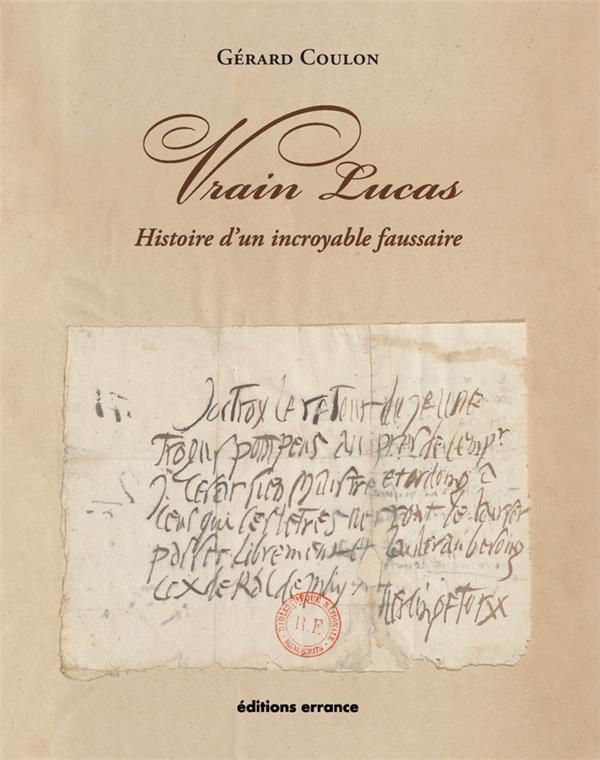 GÉRARD COULON
Vrain Lucas
Histoire d'un incroyable faussaire
Joctrox le retour du jeune
Trogus pompeus au pres de lempr
J Cesar sien maistre et
ceus qui ces letres le laisser
passer librement et au besong
ce x de Kal de
BIBLIOTHÈQUE NATIONALE
R.F.
MANUSCRITS
éditions errance